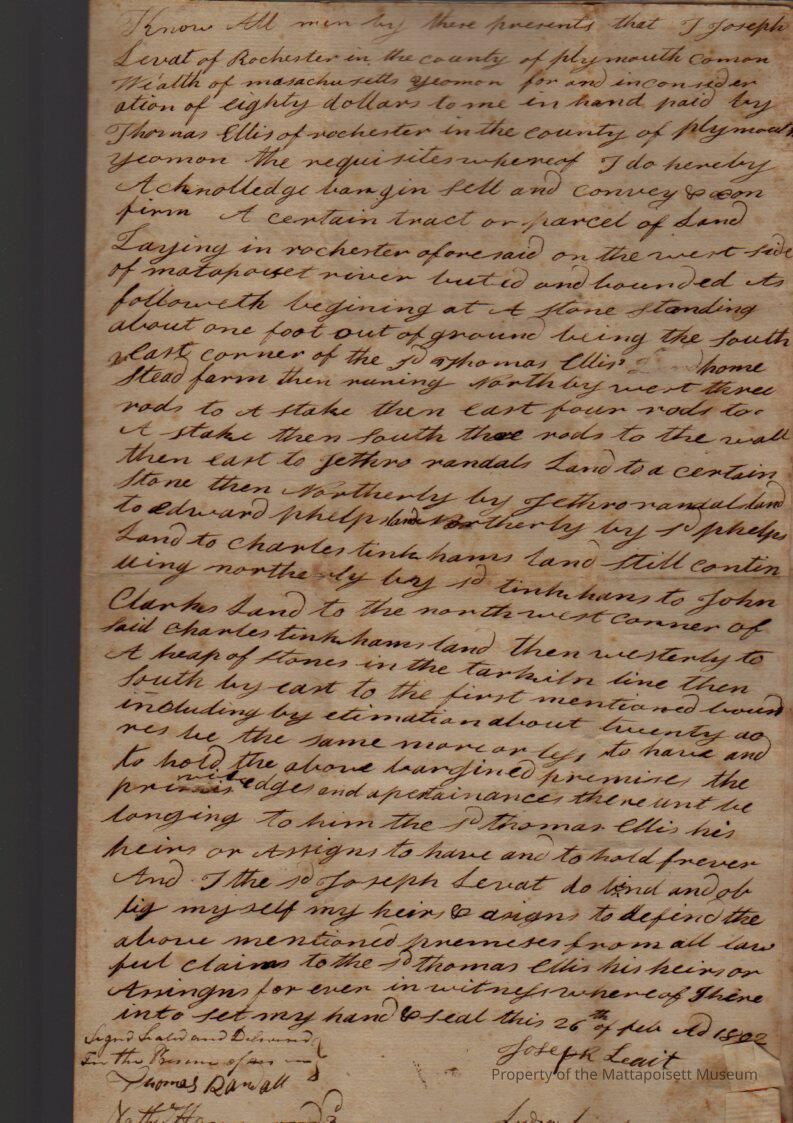 Know All men by these presents that I Joseph
Levat of Rochester in the county of plymouth comon
Wealth of masachusetts yeomon for and in consider
ation of eighty dollars to me in hand paid by
Thomas Ellis of rochester in the county of plymouth
yeomon the requisites whereof I do hereby
Acknolledge bargin Sell and convey & con
firm A certain tract or parcel of Land
Laying in rochester aforesaid on the west side
of matapoiset river buted and bounded As
followeth begining at A stone standing
about one foot out of ground being the South
East corner of the sd Thomas Ellis' home
Stead farm then runing North by west three
rods to A stake then East four rods to
A stake then South three rods to the wall
then east to Jethro randals Land to a certain
Stone then Northerly by Jethro randals land
to Edward phelps land Northerly by sd phelps
Land to Charles tinkhams land still contin
uing northerly by sd tinkhans to John
Clarks Land to the northwest corner of
said charles tinkhams land then westerly to
A heap of stones in the tarkiln line then
South by east to the first mentioned bound
including by etimation about twenty ac
res be the same more or less to have and
to hold the above bargined premises the
priviledges and apertainances there unt be
longing to him the sd thomas Ellis his
heirs or Assigns to have and to hold frever
And I the sd Joseph Levat do bind and ob
lig my self my heirs & asigns to defend the
above mentioned premeses from all law
ful claims to the sd thomas Ellis his heirs or
Assingns for ever in witness whereof I here
into set my hand & seal this 26th of feb AD 1802
Signd Seald and Deliverd
In the Presence of us
Joseph Leait
Thomas Randall
Property of the Mattapoisett Museum